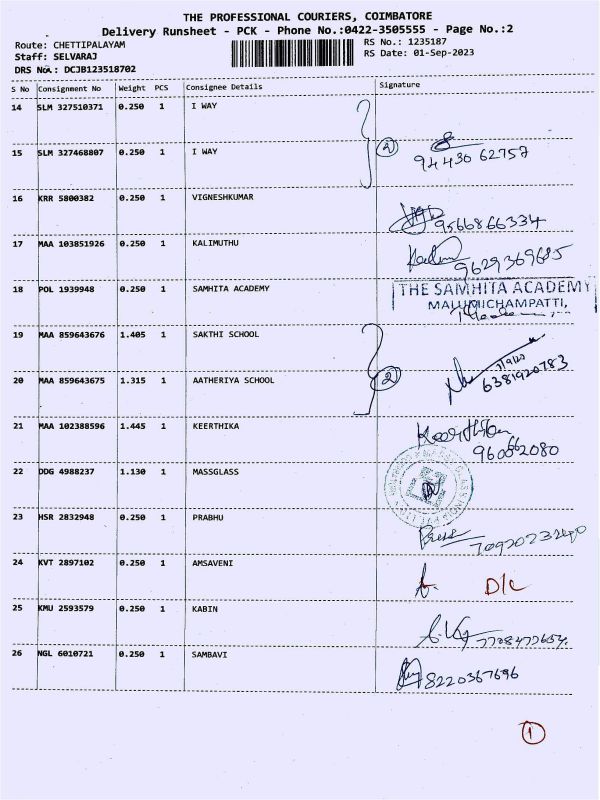 THE PROFESSIONAL COURIERS, COIMBATORE
Delivery Runsheet - PCK - Phone No.:0422-3505555 - Page No.:2
Route: CHETTIPALAYAM RS No.: 1235187
Staff: SELVARAJ RS Date: 01-Sep-2023
DRS No.: DCJB123518702
S No Consignment No Weight PCS Consignee Details Signature
14 SLM 327510371 0.250 1 I WAY
15 SLM 327468807 0.250 1 I WAY 2 94430 62757
16 KRR 5800382 0.250 1 VIGNESHKUMAR 9566866334
17 MAA 103851926 0.250 1 KALIMUTHU 9629369685
18 POL 1939948 0.250 1 SAMHITA ACADEMY THE SAMHITA ACADEMY
MALUMICHAMPATTI,
19 MAA 859643676 1.405 1 SAKTHI SCHOOL
20 MAA 859643675 1.315 1 AATHERIYA SCHOOL 2 6381920783
21 MAA 102388596 1.445 1 KEERTHIKA Keerthika
22 DDG 4988237 1.130 1 MASSGLASS
23 HSR 2832948 0.250 1 PRABHU
24 KVT 2897102 0.250 1 AMSAVENI D/C
25 KMU 2593579 0.250 1 KABIN
26 NGL 6010721 0.250 1 SAMBAVI 8220367696
1